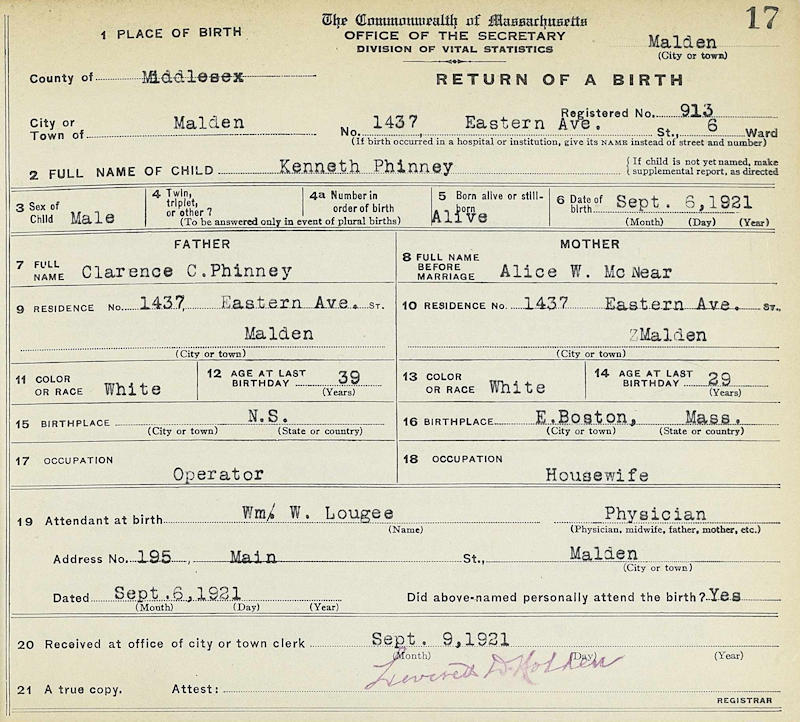 17
The Commonwealth of Massachusetts
1 PLACE OF BIRTH
OFFICE OF THE SECRETARY
DIVISION OF VITAL STATISTICS
Malden
(City or town)
County of Middlesex
RETURN OF A BIRTH
Registered No. 913
City or Town of Malden No. 1437 Eastern Ave. St., 6 Ward
(If birth occurred in a hospital or institution, give its NAME instead of street and number)
2 FULL NAME OF CHILD Kenneth Phinney { If child is not yet named, make supplemental report, as directed
3 Sex of Child Male
4 Twin, triplet, or other?
4a Number in order of birth
(To be answered only in event of plural births)
5 Born alive or still-born Alive
6 Date of birth Sept. 6,1921
(Month) (Day) (Year)
FATHER
MOTHER
7 FULL NAME Clarence C.Phinney
8 FULL NAME BEFORE MARRIAGE Alice W. Mc Near
9 RESIDENCE No. 1437 Eastern Ave. ST.
Malden
(City or town)
10 RESIDENCE No. 1437 Eastern Ave. ST.,
Malden
(City or town)
11 COLOR OR RACE White
12 AGE AT LAST BIRTHDAY 39
(Years)
13 COLOR OR RACE White
14 AGE AT LAST BIRTHDAY 29
(Years)
15 BIRTHPLACE N.S.
(City or town) (State or country)
16 BIRTHPLACE E.Boston, Mass.
(City or town) (State or country)
17 OCCUPATION
Operator
18 OCCUPATION
Housewife
19 Attendant at birth Wm. W. Lougee Physician
(Name) (Physician, midwife, father, mother, etc.)
Address No. 195 Main St., Malden
(City or town)
Dated Sept.6,1921 Did above-named personally attend the birth? Yes
(Month) (Day) (Year)
20 Received at office of city or town clerk Sept. 9,1921
(Month) (Day) (Year)
Leverett D. Holden
21 A true copy. Attest:
REGISTRAR